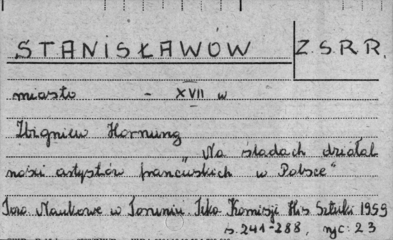 STANISŁAWÓW Z.S.R.R.
miasto - XVII w
Zbigniew Hornung
"Na śladach działal
ności artystów francuskich w Polsce"
Tow Naukowe w Toruniu. Teka Komisji His Sztuki 1959
s. 241-288, ryc: 23